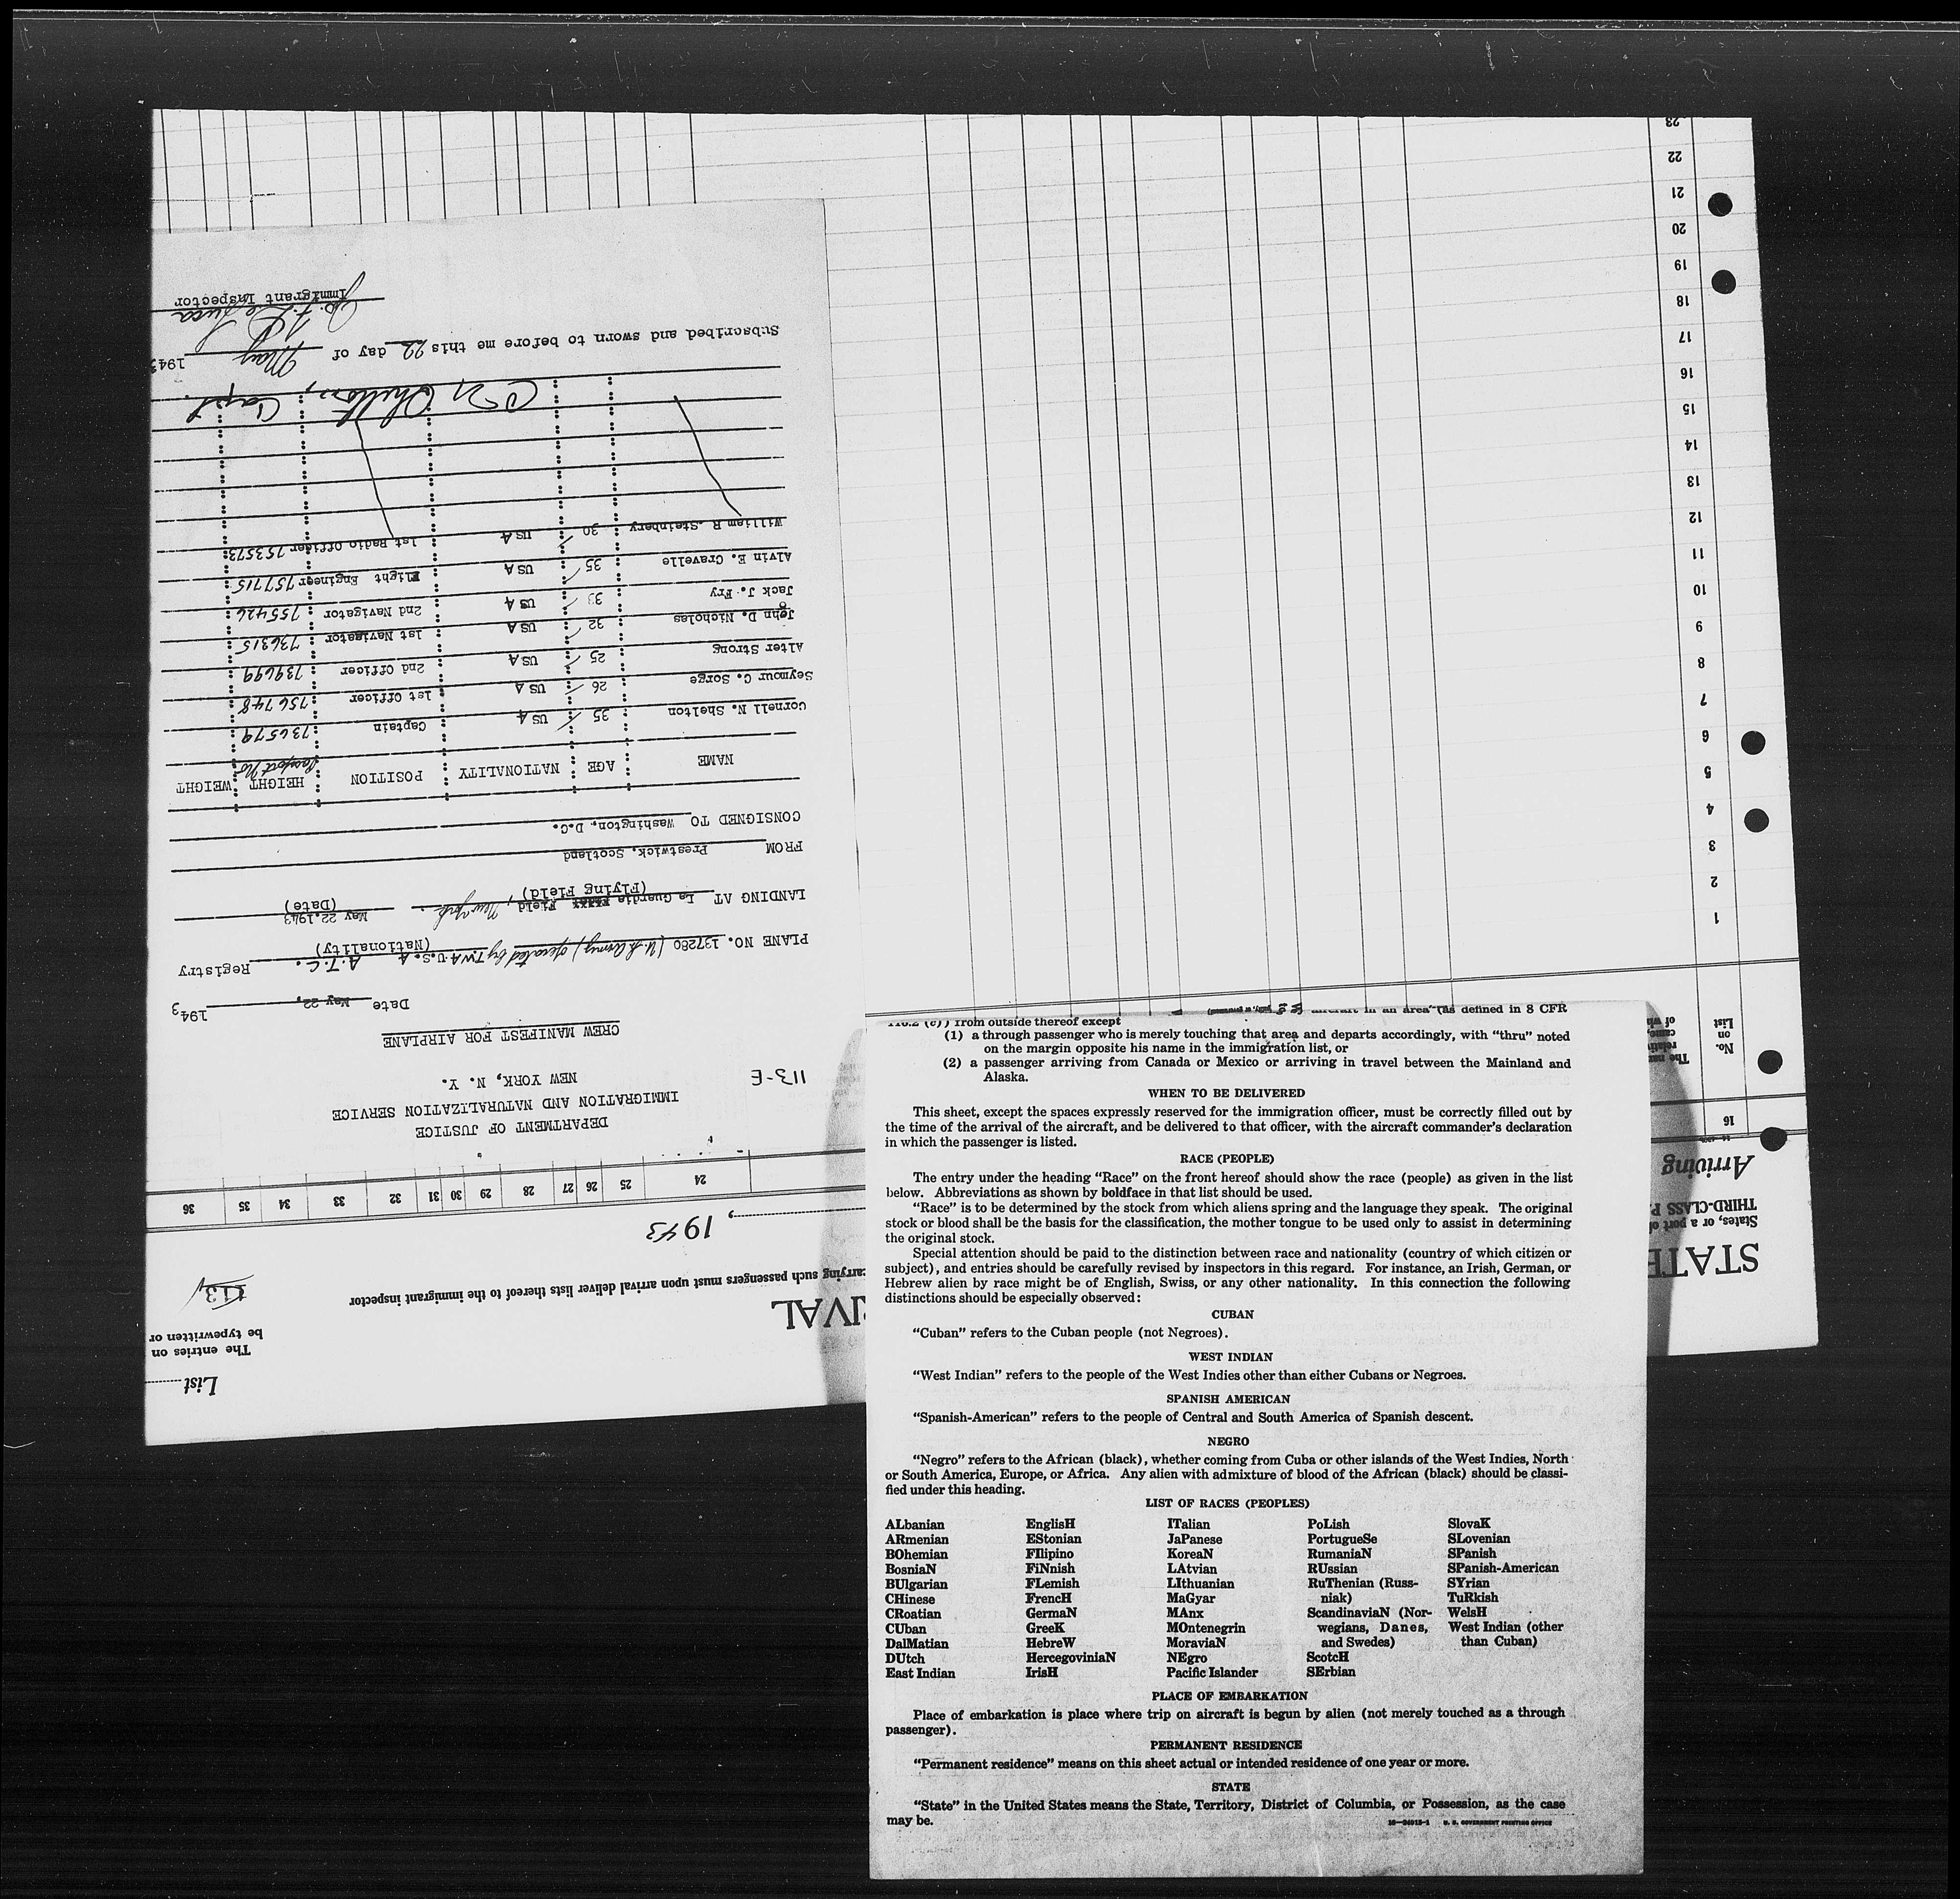 DEPARTMENT OF JUSTICE
IMMIGRATION AND NATURALIZATION SERVICE
NEW YORK, N. Y.
113-E
CREW MANIFEST FOR AIRPLANE
Date May 22, 1943
PLANE NO. 137280 (U.S. Army) operated by T.W.A. U.S.A A.T.C. Registry
(Nationality)
LANDING AT La Guardia Field, New York. May 22.1943
(Flying Field) (Date)
FROM Prestwick, Scotland
CONSIGNED TO Washington, D.C.
NAME AGE NATIONALITY POSITION HEIGHT Passport No WEIGHT
Cornell N. Shelton 35 USA Captain 736579
Seymour C. Sorge 26 USA 1st Officer 756748
Alter Strong 25 USA 2nd Officer 739699
John D. Nicholas 32 USA 1st Navigator 736315
Jack J. Fry 33 USA 2nd Navigator 755426
Alvin E. Cravelle 35 USA Flight Engineer 757715
William R. Steinbery 30 USA 1st Radio Officer 753573
C N Shelton, Capt.
Subscribed and sworn to before me this 22 day of May 1943
Immigrant Inspector
List
The entries on
be typewritten or
113
IVAL
carrying such passengers must upon arrival deliver lists thereof to the immigrant inspector
, 1943
24 25 26 27 28 29 30 31 32 33 34 35 36
STATE
States, or a port of
THIRD-CLASS P
Arriving
16
No.
on
List
1
2
3
4
5
6
7
8
9
10
11
12
13
14
15
16
17
18
19
20
21
22
23
aircraft in an area (as defined in 8 CFR
116.2 (c)) from outside thereof except
(1) a through passenger who is merely touching that area and departs accordingly, with "thru" noted
on the margin opposite his name in the immigration list, or
(2) a passenger arriving from Canada or Mexico or arriving in travel between the Mainland and
Alaska.
WHEN TO BE DELIVERED
This sheet, except the spaces expressly reserved for the immigration officer, must be correctly filled out by
the time of the arrival of the aircraft, and be delivered to that officer, with the aircraft commander's declaration
in which the passenger is listed.
RACE (PEOPLE)
The entry under the heading "Race" on the front hereof should show the race (people) as given in the list
below. Abbreviations as shown by boldface in that list should be used.
"Race" is to be determined by the stock from which aliens spring and the language they speak. The original
stock or blood shall be the basis for the classification, the mother tongue to be used only to assist in determining
the original stock.
Special attention should be paid to the distinction between race and nationality (country of which citizen or
subject), and entries should be carefully revised by inspectors in this regard. For instance, an Irish, German, or
Hebrew alien by race might be of English, Swiss, or any other nationality. In this connection the following
distinctions should be especially observed:
CUBAN
"Cuban" refers to the Cuban people (not Negroes).
WEST INDIAN
"West Indian" refers to the people of the West Indies other than either Cubans or Negroes.
SPANISH AMERICAN
"Spanish-American" refers to the people of Central and South America of Spanish descent.
NEGRO
"Negro" refers to the African (black), whether coming from Cuba or other islands of the West Indies, North
or South America, Europe, or Africa. Any alien with admixture of blood of the African (black) should be classi-
fied under this heading.
LIST OF RACES (PEOPLES)
ALbanian
ARmenian
BOhemian
BosniaN
BUlgarian
CHinese
CRoatian
CUban
DalMatian
DUtch
East Indian
EnglisH
EStonian
FIlipino
FiNnish
FLemish
FrencH
GermaN
GreeK
HebreW
HercegoviniaN
IrisH
ITalian
JaPanese
KoreaN
LAtvian
LIthuanian
MaGyar
MAnx
MOntenegrin
MoraviaN
NEgro
Pacific Islander
PoLish
PortugueSe
RumaniaN
RUssian
RuThenian (Russ-
niak)
ScandinaviaN (Nor-
wegians, Danes,
and Swedes)
ScotcH
SErbian
SlovaK
SLovenian
SPanish
SPanish-American
SYrian
TuRkish
WelsH
West Indian (other
than Cuban)
PLACE OF EMBARKATION
Place of embarkation is place where trip on aircraft is begun by alien (not merely touched as a through
passenger).
PERMANENT RESIDENCE
"Permanent residence" means on this sheet actual or intended residence of one year or more.
STATE
"State" in the United States means the State, Territory, District of Columbia, or Possession, as the case
may be.
16—24915-1 U. S. GOVERNMENT PRINTING OFFICE